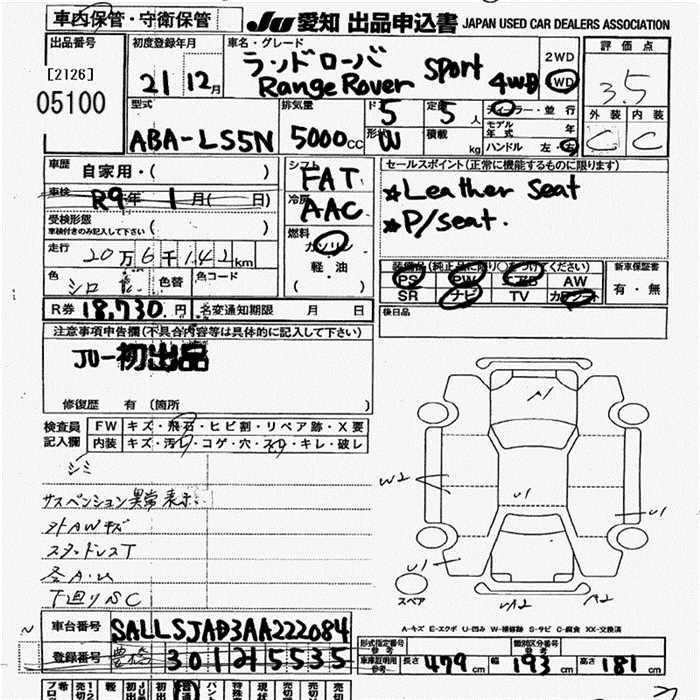 車内保管・守衛保管
JU 愛知 出品申込書 JAPAN USED CAR DEALERS ASSOCIATION
出品番号
[2126]
05100
初度登録年月
21 12月
車名・グレード
ランドローバ
Range Rover Sport 4WD
2WD
4WD
評価点
3.5
外装 内装
C C
型式
ABA-LS5N
排気量
5000cc
ド 5
形状 W
定員 5人
積載 kg
ディーラー・並行
モデル年式 年
ハンドル 左・右
車歴 自家用・( )
車検 R9年 1月( 日)
受検形態
車検付きのみ記入して下さい ( )
走行 20万6千142km
色 シロ 系 色替 色コード
R券 18,730.円 名変通知期限 月 日
シフト
FAT
冷房
AAC
燃料
ガソリン
軽・油
( )
セールスポイント(正常に機能するものに限ります)
★Leather Seat
★P/Seat.
装備品(純正品に限り○をつけてください)
PS PW エアB AW
SR ナビ TV カワシート
新車保証書
有・無
後日品
注意事項申告欄(不具合内容等は具体的に記入して下さい)
JU-初出品
修復歴 有 (箇所 )
検査員
記入欄
FW キズ・飛石・ヒビ割・リペア跡・X要
内装 キズ・汚れ・コゲ・穴・スレ・キレ・破レ
シミ
サスペンション異常表示
外AWキズ
スタッドレスT
各A・U
下廻りSC
A1
W2
U1
U1
U1
UA2
A2
スペア
A-キズ E-エクボ U-凹み W-補修跡 S-サビ C-腐食 XX-交換済
車台番号 SALLSJAD3AA222084
登録番号 豊橋 301 そ 5535
形式指定番号
参考
個別区分番号
参考
車庫証明用
参考
長さ 479cm 幅 193cm 高さ 181cm